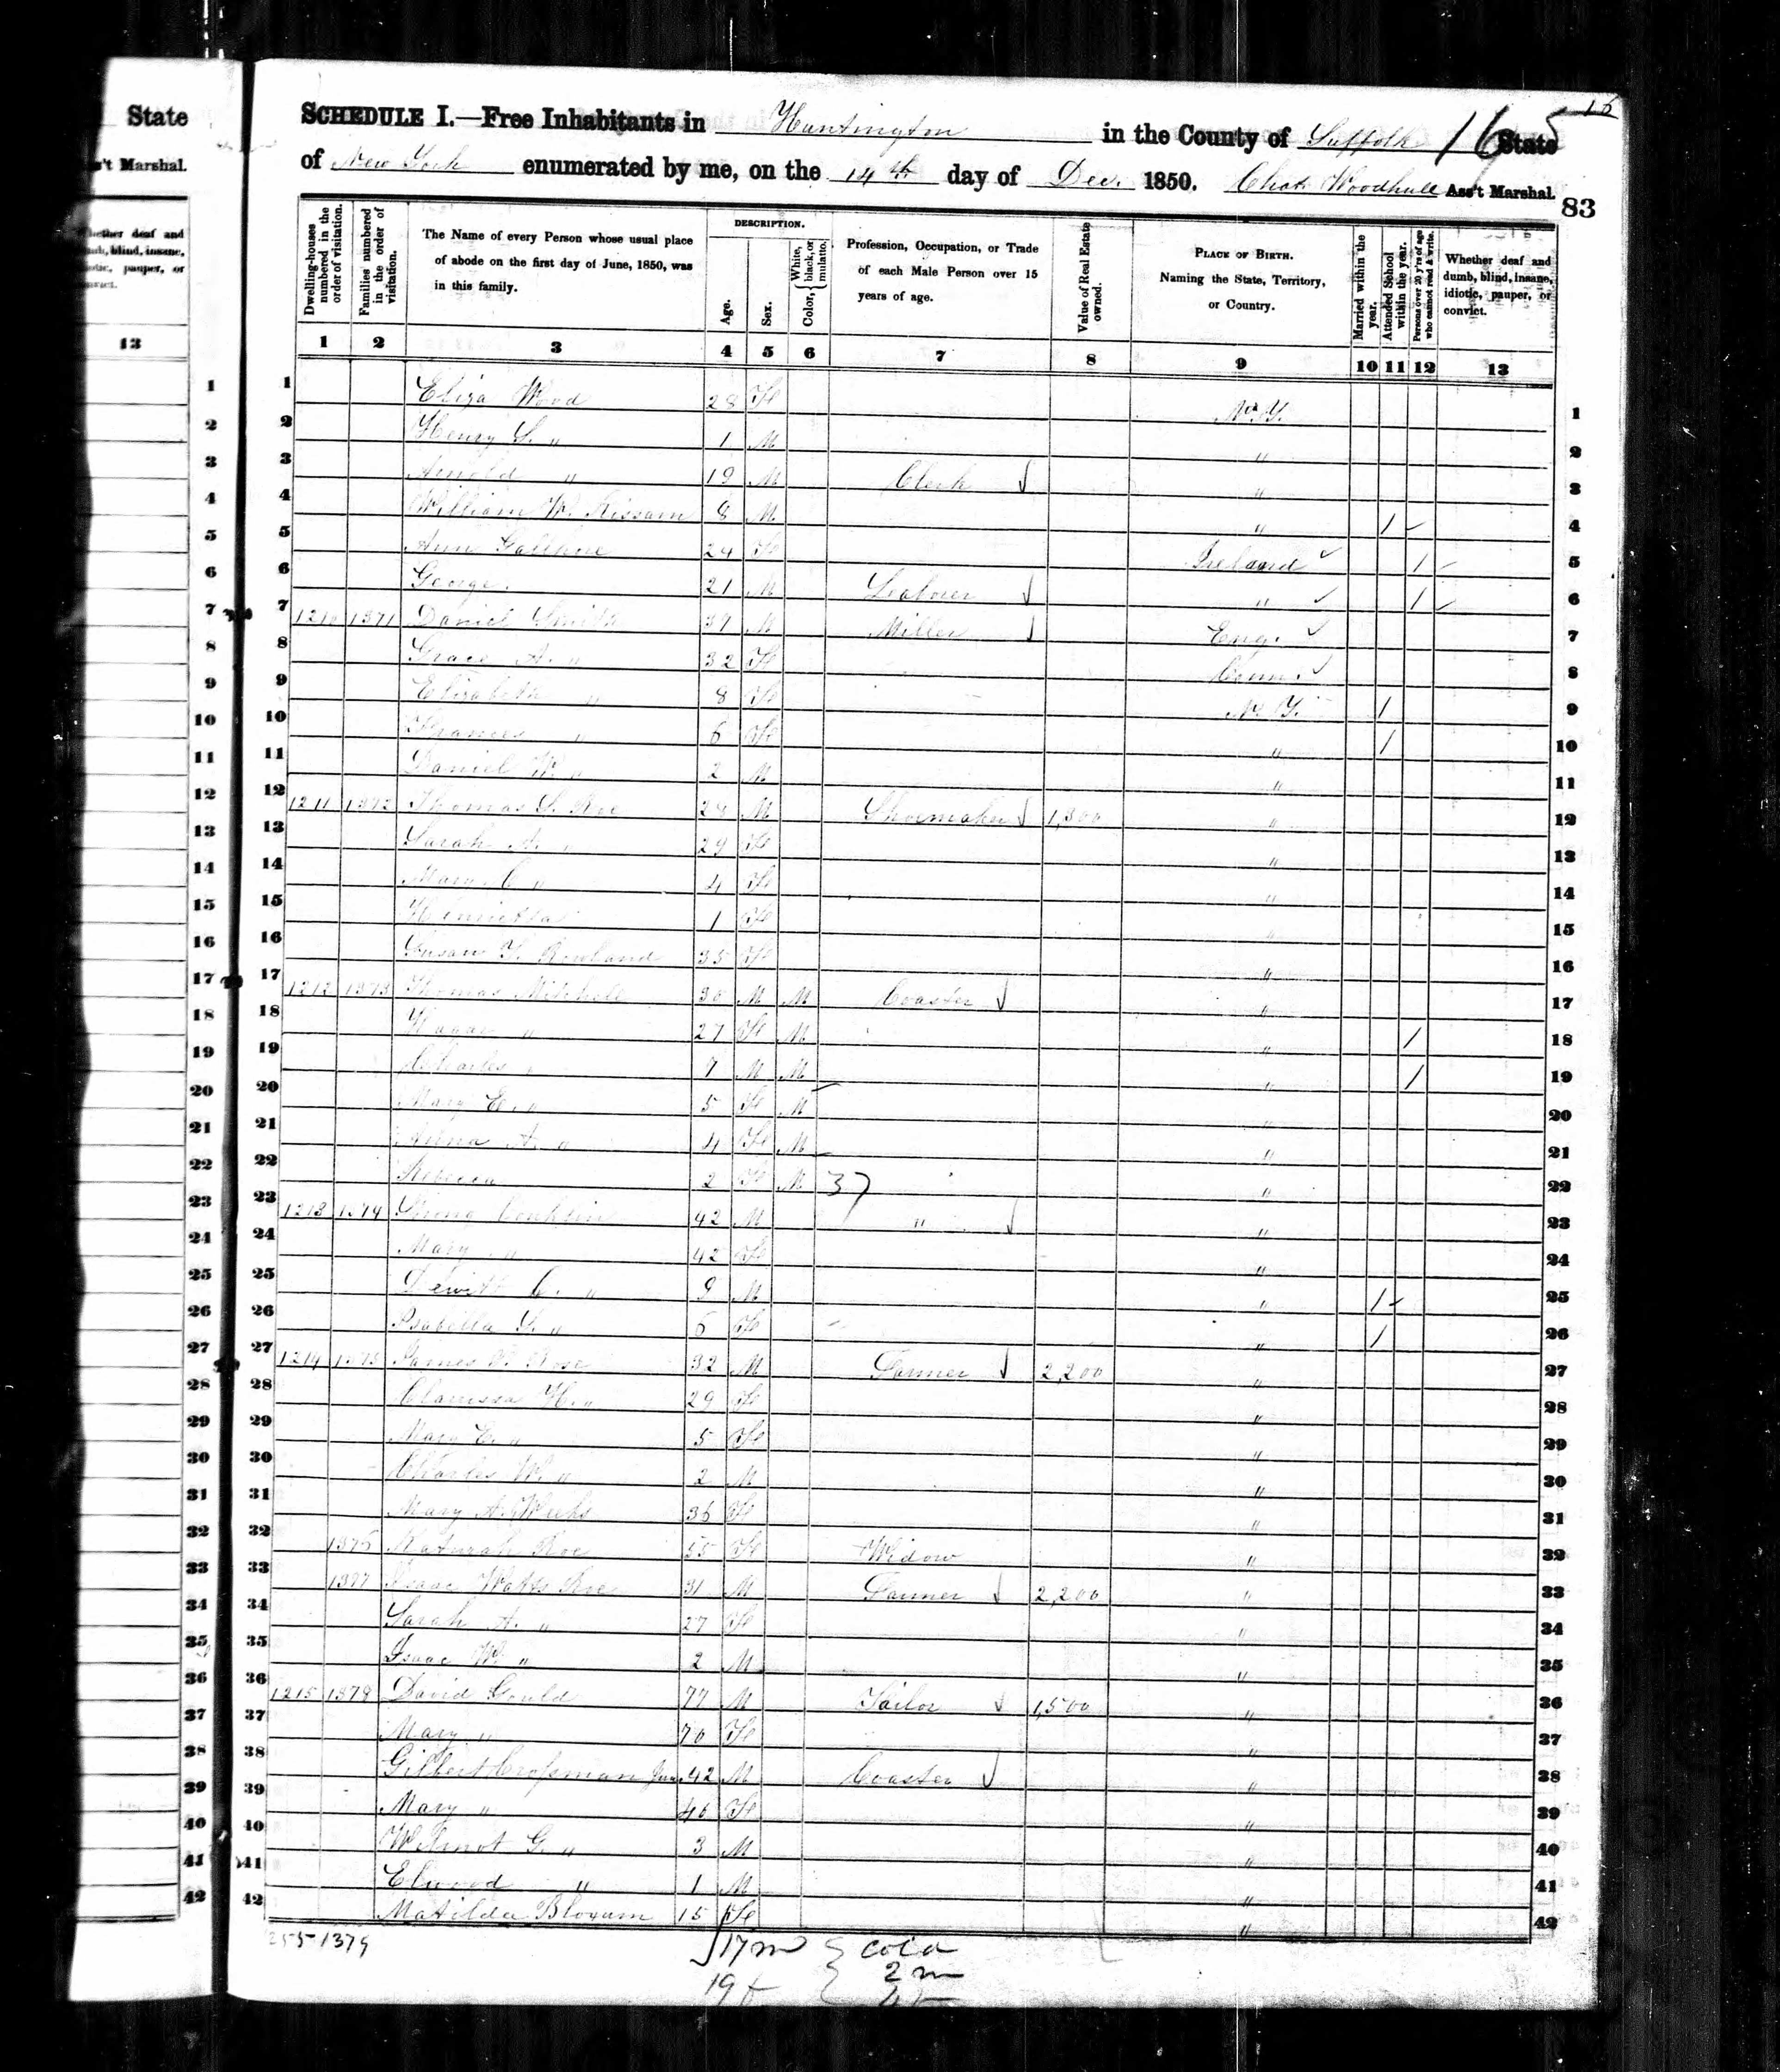 State
16
SCHEDULE I.—Free Inhabitants in Huntington in the County of Suffolk State
16
of New York enumerated by me, on the 14th day of Dec. 1850. Chas Woodhull Ass't Marshal.
83
't Marshal.
Dwelling-houses numbered in the order of visitation.
Families numbered in the order of visitation.
The Name of every Person whose usual place of abode on the first day of June, 1850, was in this family.
DESCRIPTION.
Age.
Sex.
Color, { White, black, or mulatto.
Profession, Occupation, or Trade of each Male Person over 15 years of age.
Value of Real Estate owned.
PLACE OF BIRTH. Naming the State, Territory, or Country.
Married within the year.
Attended School within the year.
Persons over 20 y'rs of age who cannot read & write.
Whether deaf and dumb, blind, insane, idiotic, pauper, or convict.
13
1 2 3 4 5 6 7 8 9 10 11 12 13
1 Eliza Wood 28 F N. Y. 1
2 Henry S. " 1 M " 2
3 Arnold " 19 M Clerk " 3
4 William W. Kissam 8 M " 1 4
5 Ann 24 F Ireland 1 5
6 George 21 M Labourer " 1 6
7 1210 1371 Daniel Smith 37 M Miller Eng. 7
8 Grace A. " 32 F Conn. 8
9 Elizabeth " 8 F N. Y. 1 9
10 Frances " 6 F " 1 10
11 Daniel W. " 2 M " 11
12 1211 1372 Thomas S. Roe 28 M Shoemaker 1,300 " 12
13 Sarah A. " 29 F " 13
14 Mary C. " 4 F " 14
15 Henrietta 1 F " 15
16 Susan Y. Rowland 35 F " 16
17 1212 1373 Thomas Mitchell 30 M M Coaster " 17
18 Hagar " 27 F M " 1 18
19 Charles " 7 M M " 1 19
20 Mary E. " 5 F M " 20
21 Anna A. " 4 F M " 21
22 Rebecca 2 F M 37 " 22
23 1213 1374 Strong Conklin 42 M " " 23
24 Mary " 42 F " 24
25 Dewitt C. " 9 M " 1 25
26 Isabella S. " 6 F " 1 26
27 1214 1375 James Rose 32 M Farmer 2,200 " 27
28 Clarissa H. " 29 F " 28
29 Mary E. " 5 F " 29
30 Charles W. " 2 M " 30
31 Mary A. Weeks 36 F " 31
32 1376 Maturah Roe 55 F Widow " 32
33 1377 Isaac Watts Roe 31 M Farmer 2,200 " 33
34 Sarah A. " 27 F " 34
35 Isaac W. " 2 M " 35
36 1215 1378 David Gould 77 M Tailor 1,500 " 36
37 Mary " 70 F " 37
38 Gilbert Crossman Jun. 42 M Coaster " 38
39 Mary " 40 F " 39
40 Wilmot G. " 3 M " 40
41 Elwood " 1 M " 41
42 Matilda Bloxum 15 F " 42
1379
17 m } cold
19 f } 2 m